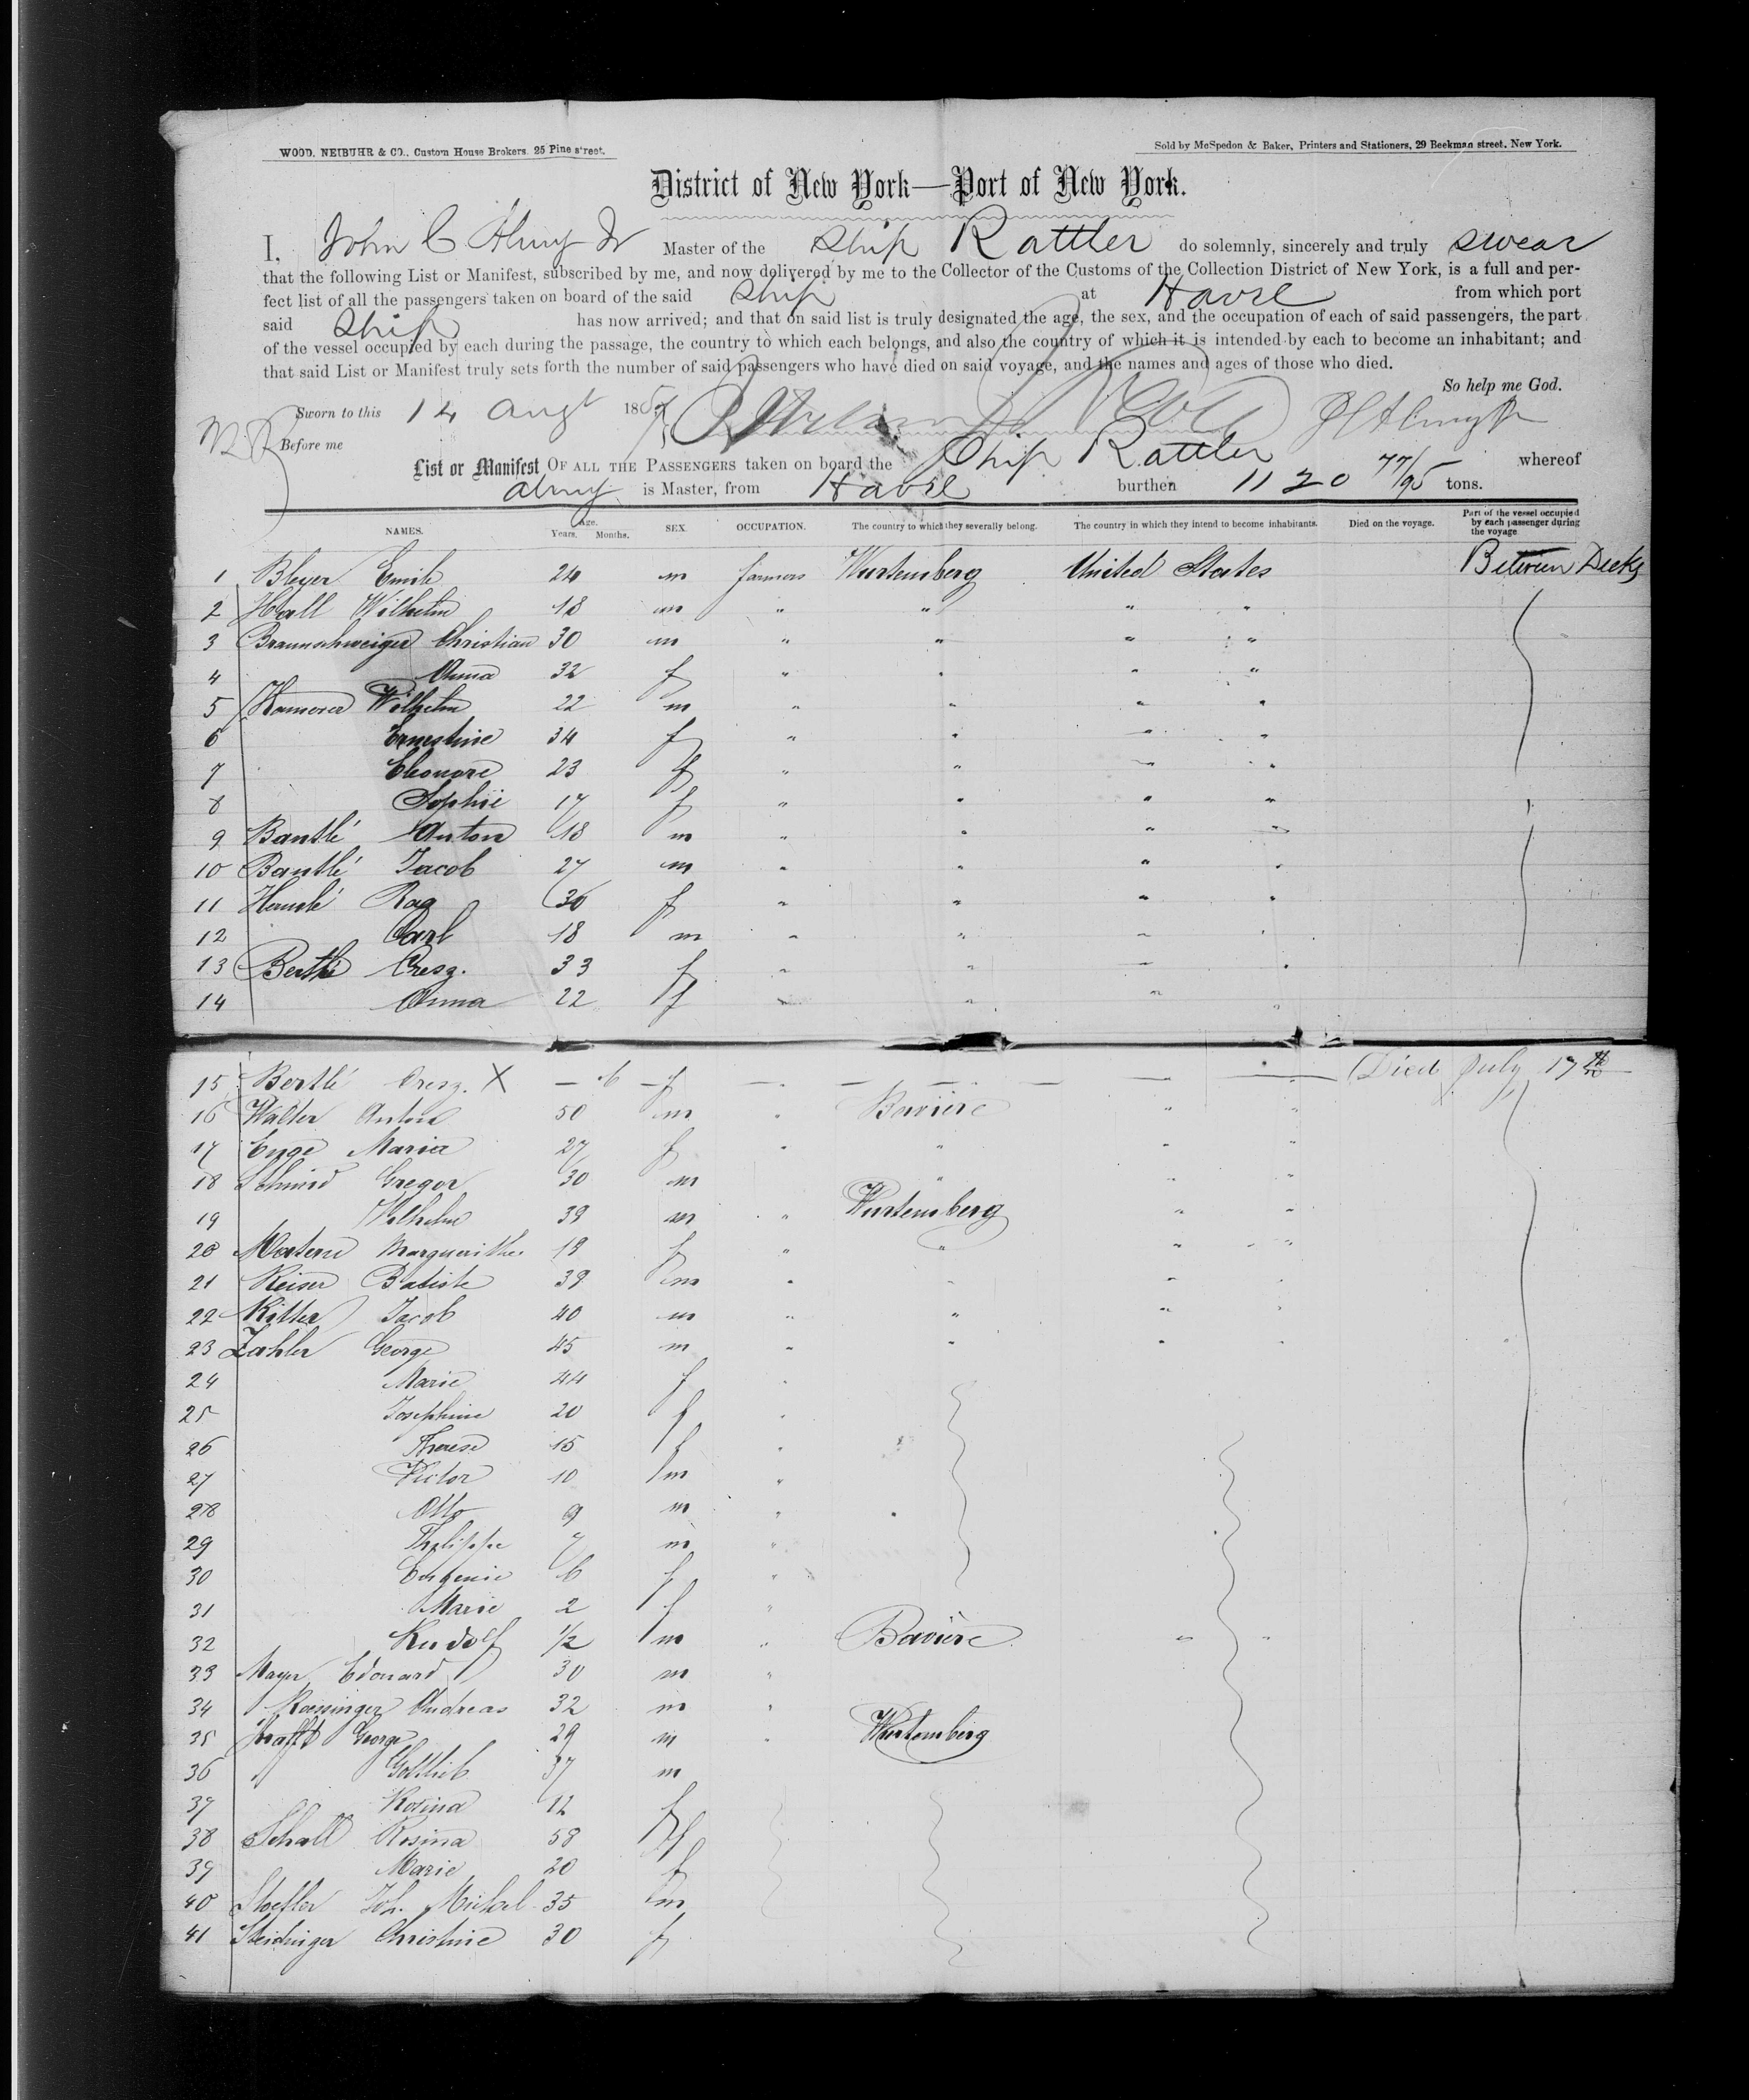 WOOD, NEIBUHR & CO., Custom House Brokers. 25 Pine street.
Sold by McSpedon & Baker, Printers and Stationers, 29 Beekman street, New York.
District of New York—Port of New York.
I, John C Almy Jr Master of the Ship Rattler do solemnly, sincerely and truly swear
that the following List or Manifest, subscribed by me, and now delivered by me to the Collector of the Customs of the Collection District of New York, is a full and per-
fect list of all the passengers taken on board of the said Ship at Havre from which port
said Ship has now arrived; and that on said list is truly designated the age, the sex, and the occupation of each of said passengers, the part
of the vessel occupied by each during the passage, the country to which each belongs, and also the country of which it is intended by each to become an inhabitant; and
that said List or Manifest truly sets forth the number of said passengers who have died on said voyage, and the names and ages of those who died.
So help me God.
Sworn to this 14 Augt 185 J C Almy Jr
Before me
List or Manifest OF ALL THE PASSENGERS taken on board the Ship Rattler whereof
Almy is Master, from Havre burthen 1120 77/95 tons.
NAMES. Age. Years. Months. SEX. OCCUPATION. The country to which they severally belong. The country in which they intend to become inhabitants. Died on the voyage. Part of the vessel occupied by each passenger during the voyage
1 Bleyer Emile 24 m farmers Wurtemberg United States Between Decks
2 Hall Wilhelm 18 m " " " "
3 Braunschweiger Christian 30 m " " " "
4 Anna 32 f " " " "
5 Kamerer Wilhelm 22 m " " " "
6 Ernestine 34 f " " " "
7 Eleonore 23 f " " " "
8 Sophie 17 f " " " "
9 Bantlé Anton 18 m " " " "
10 Bantlé Jacob 27 m " " " "
11 30 f " " " "
12 Carl 18 m " " " "
13 Berthé Cresz. 33 f " " " "
14 Anna 22 f " " " "
15 Bertlé Cresz. X — 6 — f — — — — — Died July 17th
16 Walter Anton 50 m " Baviere " "
17 Enge Maria 27 f " " " "
18 Schmid Gregor 30 m " " "
19 Wilhelm 39 m " Wurtemberg " "
20 Marguerithe 19 f " " " "
21 Keiser Batiste 39 m " " " "
22 Ritter Jacob 40 m " " " "
23 Zahler George 45 m " " " "
24 Marie 44 f "
25 Josephine 20 f "
26 Therese 15 f "
27 Victor 10 m "
28 Otto 9 m "
29 Philippe 7 m "
30 Eugenie 6 f "
31 Marie 2 f "
32 Rudolf 1/2 m " Baviere " "
33 Mayer Edouard 30 m "
34 Roessinger Andreas 32 m "
35 Krafft George 29 m " Wurtemberg
36 " Gottlieb 37 m
37 Rosina 12 f
38 Schall Rosina 58 f
39 Marie 20 f
40 Stoefler Joh. Michel 35 m
41 Steidinger Christine 30 f